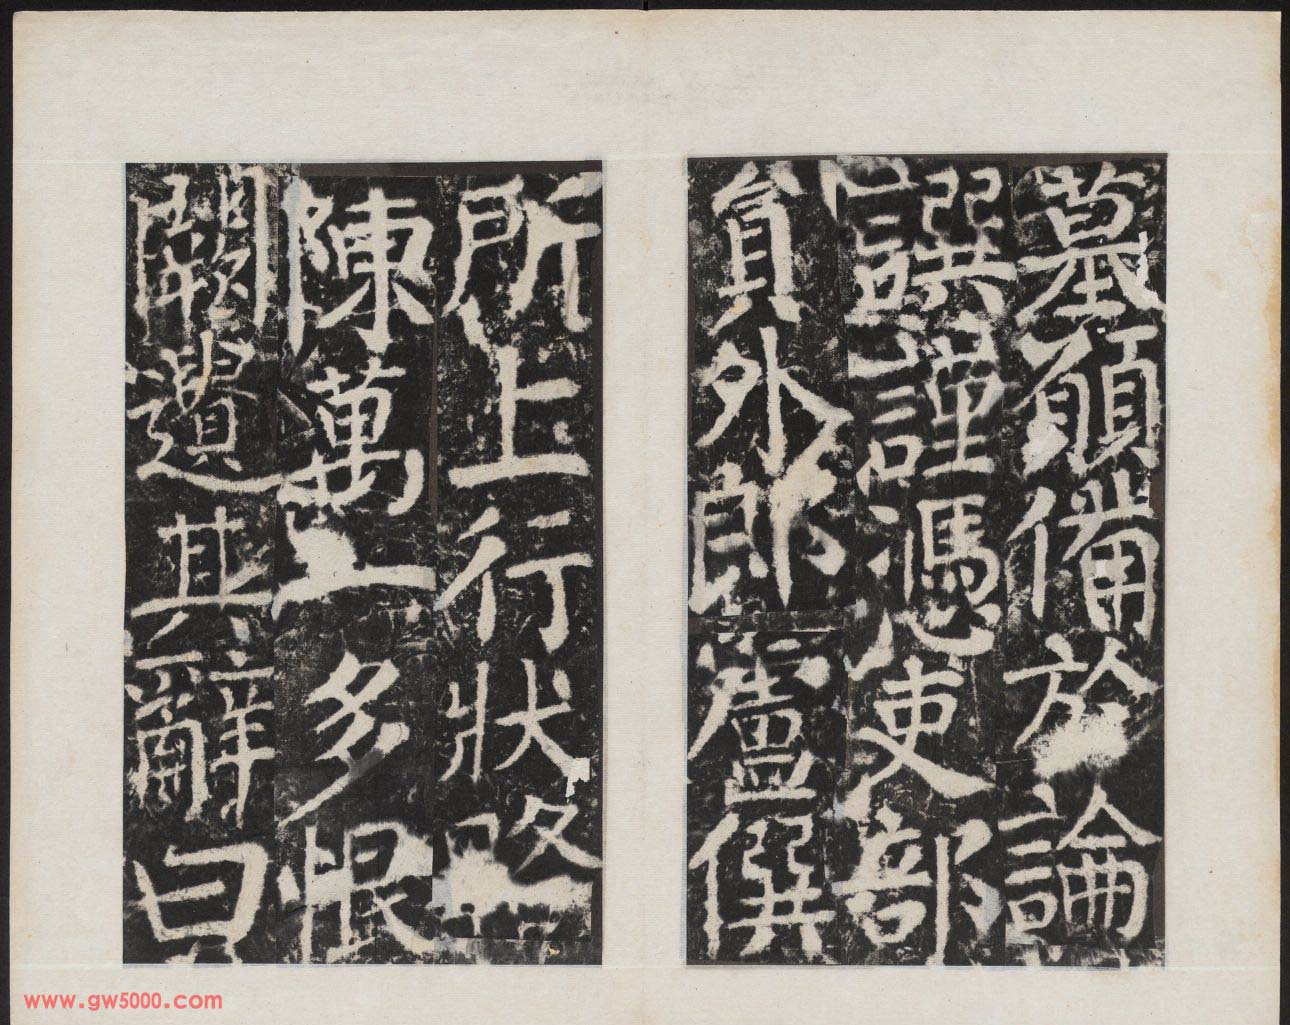 墓願備於論
譔謹憑吏部
員外郎盧僎
所上行狀略
陳萬一多恨
闕遺其辭曰
www.gw5000.com